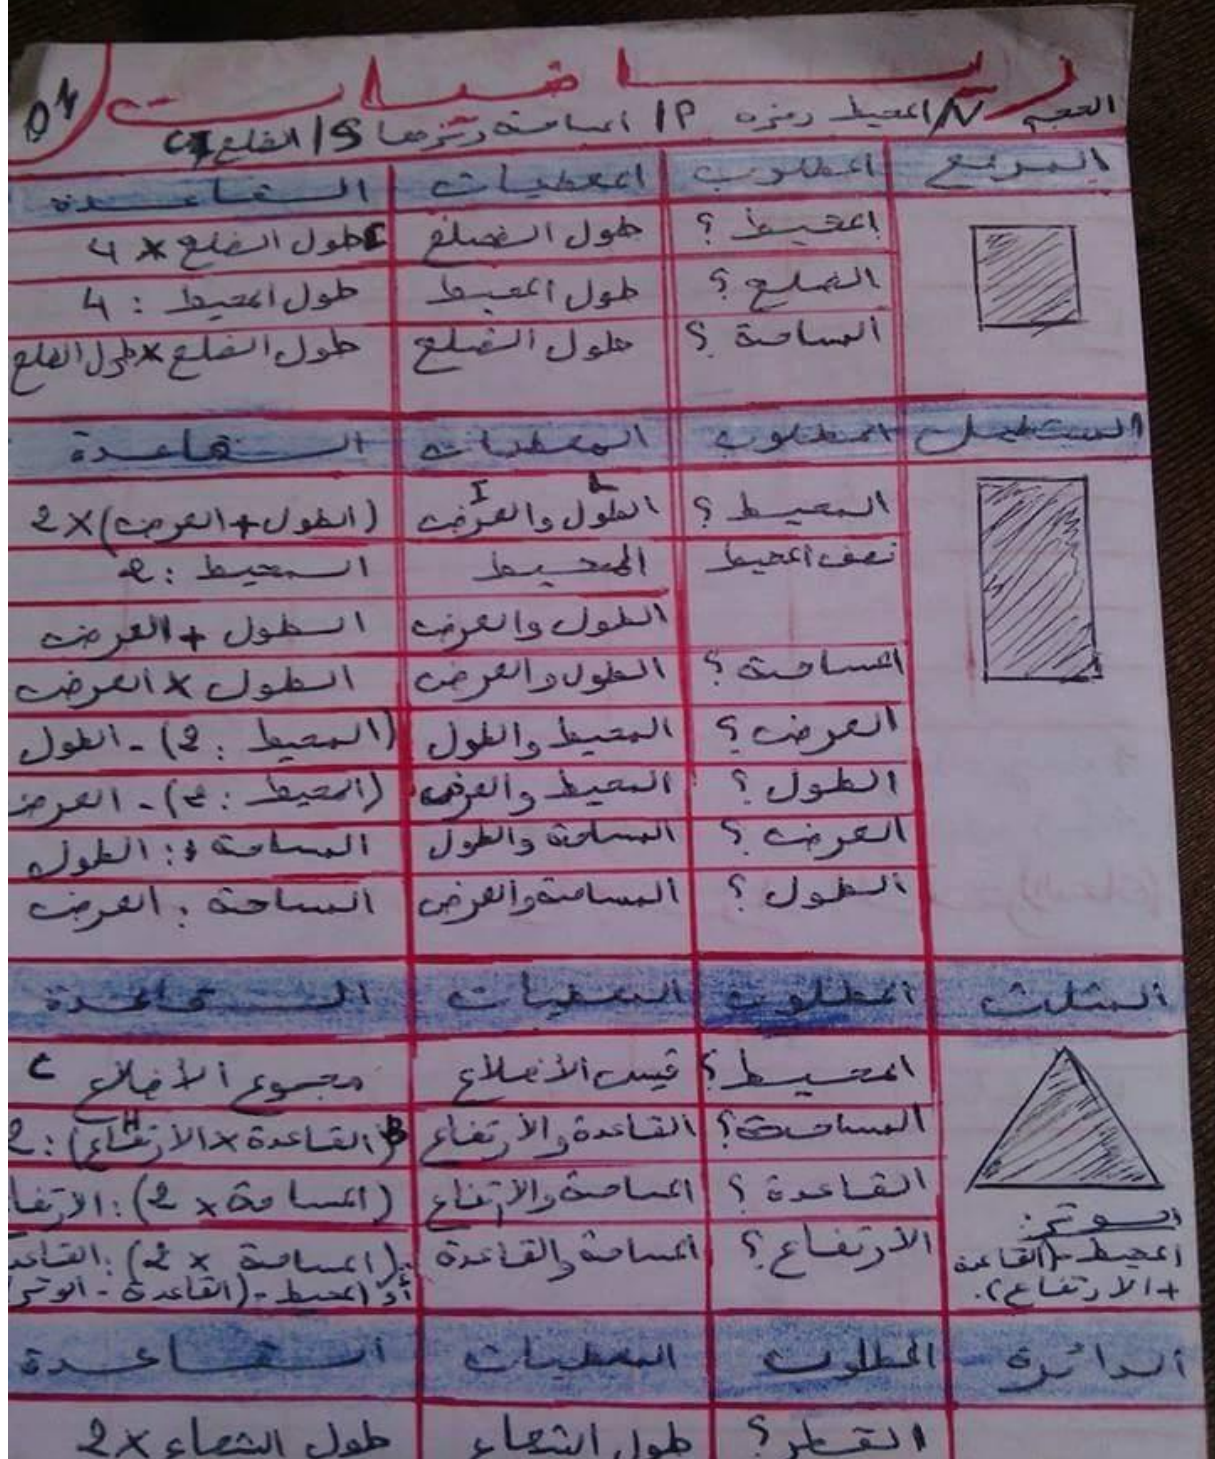 رياضيات
01
الحجم V/ المحيط رمزه P/ المساحة رمزها S/ الضلع C
المربع المطلوب المعطيات القاعدة
المحيط ؟ طول الضلع طول الضلع × 4
الضلع ؟ طول المحيط طول المحيط : 4
المساحة ؟ طول الضلع طول الضلع × طول الضلع
المستطيل المطلوب المعطيات القاعدة
L I
المحيط ؟ الطول والعرض (الطول + العرض) × 2
نصف المحيط المحيط المحيط : 2
الطول والعرض الطول + العرض
المساحة ؟ الطول والعرض الطول × العرض
العرض ؟ المحيط والطول (المحيط : 2) - الطول
الطول ؟ المحيط والعرض (المحيط : 2) - العرض
العرض ؟ المساحة والطول المساحة : الطول
الطول ؟ المساحة والعرض المساحة : العرض
المثلث المطلوب المعطيات القاعدة
المحيط ؟ قيس الأضلاع مجموع الأضلاع C
المساحة ؟ القاعدة والارتفاع B (القاعدة × الارتفاع) : 2
H
القاعدة ؟ المساحة والارتفاع (المساحة × 2) : الارتفا
الارتفاع ؟ المساحة والقاعدة (المساحة × 2) : القاعد
أو المحيط - (القاعدة - الوتر
الوتر :
المحيط - (القاعدة
+ الارتفاع).
الدائرة المطلوب المعطيات القاعدة
القطر ؟ طول الشعاع طول الشعاع × 2